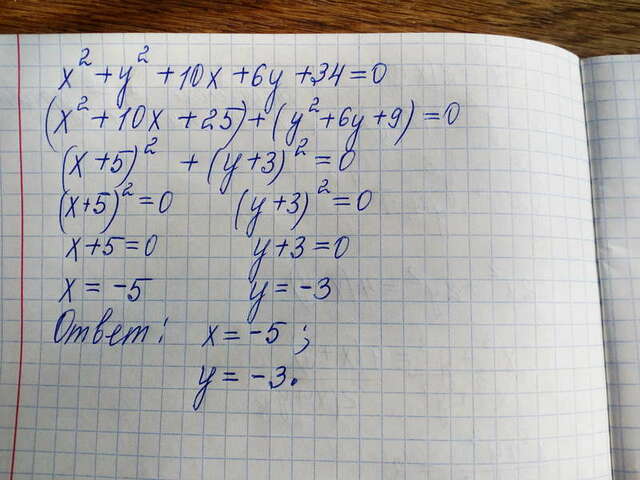 x² + y² + 10x + 6y + 34 = 0
(x² + 10x + 25) + (y² + 6y + 9) = 0
(x + 5)² + (y + 3)² = 0
(x + 5)² = 0 (y + 3)² = 0
x + 5 = 0 y + 3 = 0
x = -5 y = -3
Ответ: x = -5 ;
y = -3.